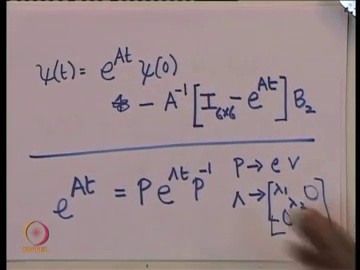 ψ(t) = e^{At} ψ(0)
- A^{-1} [I_{6x6} - e^{At}] B_2
e^{At} = P e^{Λt} P^{-1} P → e v
Λ → [λ_1 λ_2 0
0]